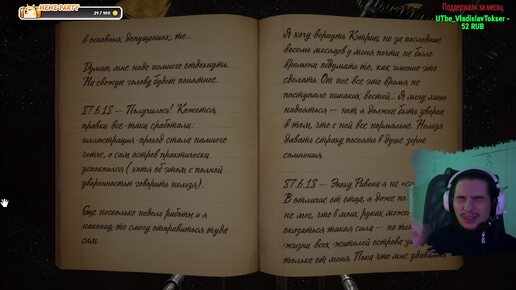 MEME-PARTY
29 / 100
Поддержи за месяц
UTbe_VladislavTokser -
52 RUB
в основных допущениях, то...
Думаю, мне надо немного отдохнуть.
На свежую голову будет понятнее.
87.6.18 — Получилось! Кажется,
правки все-таки сработали:
иллюстрация-проход стала намного
четче, а сам остров практически
успокоился (хотя об этом с полной
уверенностью говорить нельзя).
Еще несколько недель работы и я
наконец-то смогу отправиться туда
сам.
Я хочу вернуть Кэтрин, но за последние
восемь месяцев у меня почти не было
времени обдумать то, как именно это
сделать. От нее все это время не
поступало никаких вестей... Я могу лишь
надеяться — нет, я должен быть уверен
в том, что с ней все нормально. Нельзя
давать страху посеять в душе зерно
сомнения.
87.6.18 — Эпоху Ривена я не
В отличие от отца, я даже
не мог, что в моих руках может
оказаться такая сила — но теперь
жизни всех жителей острова
только от меня. Пока что мне